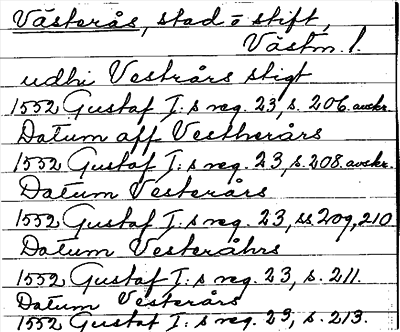 Västerås, stad o stift,
Västm. l.
udhi Vestrårs stigt
1552 Gustaf I:s reg. 23, s. 206. avskr.
Datum aff Vestherårs
1552 Gustaf I:s reg. 23, s. 208. avskr.
Datum Vesterårs
1552 Gustaf I:s reg. 23, ss. 209, 210
Datum Vesteråhrs
1552 Gustaf I:s reg. 23, s. 211.
Datum Vesterårs
1552 Gustaf I:s reg. 23, s. 213.